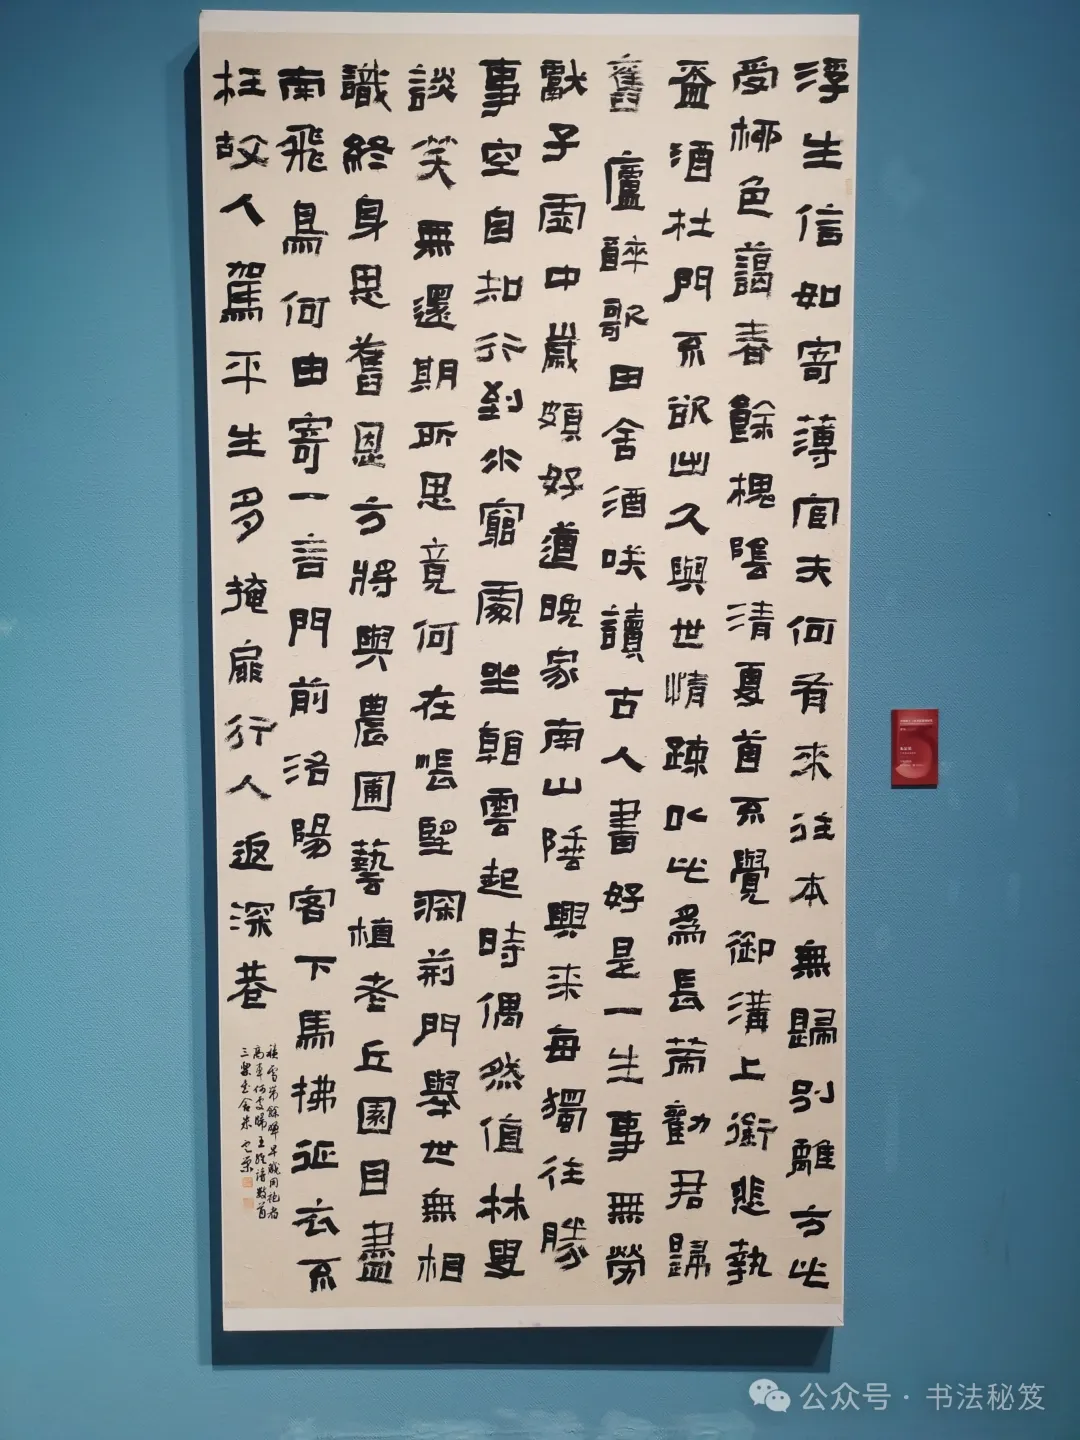 浮生信如寄薄宦夫何有来往本無歸別離方此
受柳色藹春餘槐陰清夏首不覺御溝上銜悲執
盃酒杜門不欲出久與世情疎以此為長策勸君歸
舊廬醉歌田舍酒咲讀古人書好是一生事無勞
獻子虛中歲頗好道晚家南山陲興来每獨往勝
事空自知行到水窮處坐看雲起時偶然值林叟
談笑無還期所思竟何在悵望深荊門舉世無相
識終身思舊恩方將與農圃藝植老丘園目盡
南飛鳥何由寄一言門前洛陽客下馬拂征衣不
枉故人駕平生多掩扉行人返深巷
積雪帶餘暉早歲同袍者
高車何處歸王維詩數首
三樂書舍朱
公众号·书法秘笈